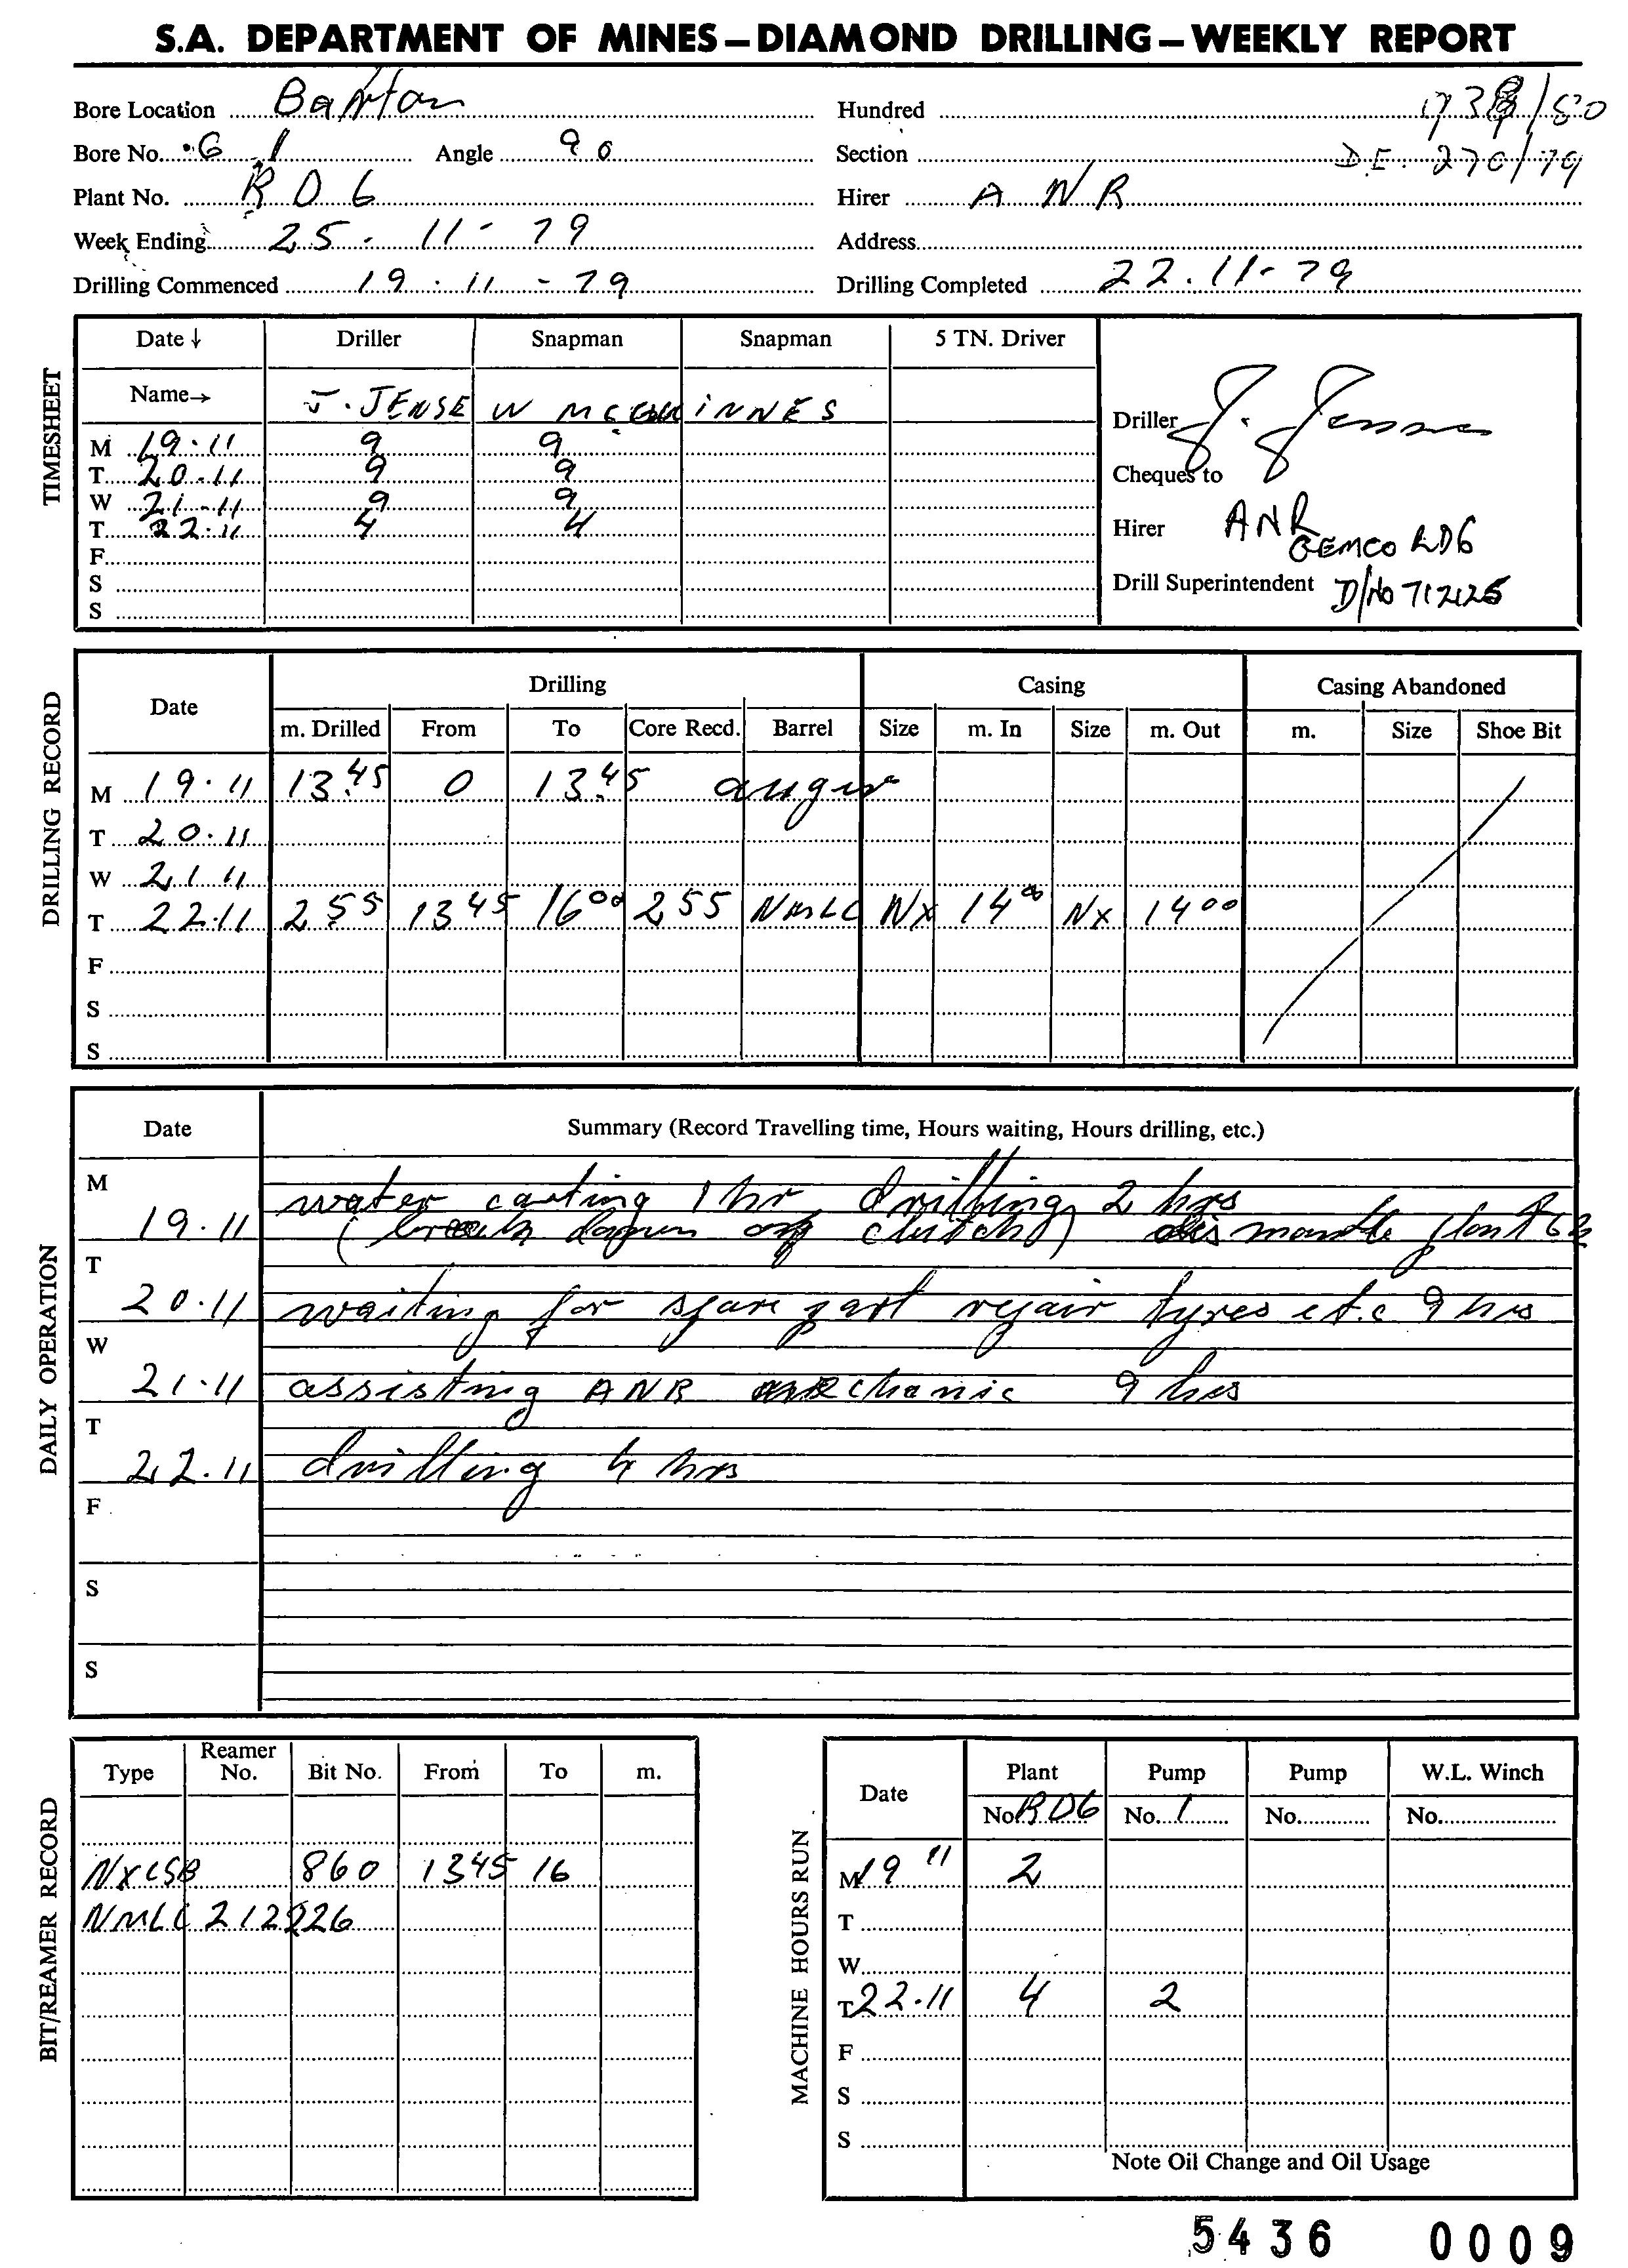 S.A. DEPARTMENT OF MINES—DIAMOND DRILLING—WEEKLY REPORT
Bore Location Barton Hundred
Bore No. G 1 Angle 90 Section D.E. 270/79
Plant No. RD6 Hirer A N R
Week Ending 25 - 11 - 79 Address
Drilling Commenced 19 . 11 - 79 Drilling Completed 22.11-79
TIMESHEET
Date ↓ Driller Snapman Snapman 5 TN. Driver
Name→ J. JENSE W
M 19.11 9 9
T 20.11 9 9
W 21.11 9 9
T 22.11 4 4
F
S
S
Driller J. Jensen
Cheques to
Hirer ANR
GEMCO RD6
Drill Superintendent D/No 712125
DRILLING RECORD
Date Drilling Casing Casing Abandoned
m. Drilled From To Core Recd. Barrel Size m. In Size m. Out m. Size Shoe Bit
M 19.11 13.45 0 13.45 auger
T 20.11
W 21 11
T 22.11 2 55 13 45 16 00 2 55 NMLC NX 14 00 NX 14 00
F
S
S
DAILY OPERATION
Date Summary (Record Travelling time, Hours waiting, Hours drilling, etc.)
M
19.11 water carting 1 hr drilling 2 hrs
(break down of clutch) dismantle plant 6h
T
20.11 waiting for spare part repair tyres etc 9 hrs
W
21.11 assisting ANR mechanic 9 hrs
T
22.11 drilling 4 hrs
F
S
S
BIT/REAMER RECORD
Type Reamer No. Bit No. From To m.
NXCSB 860 1345 16
NMLC
MACHINE HOURS RUN
Date Plant Pump Pump W.L. Winch
No. RD6 No. 1 No. No.
M 19 11 2
T
W
T 22.11 4 2
F
S
S
Note Oil Change and Oil Usage
5436 0009